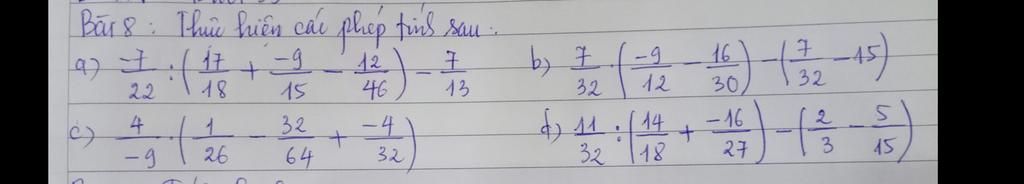 Bài 8: Thực hiện các phép tính sau:
a) -7/22 : (17/18 + -9/15 - 12/46) - 7/13 b) 7/32 . (-9/12 - 16/30) - (7/32 - 15)
c) 4/-9 . (1/26 - 32/64 + -4/32) d) 11/32 : (14/18 + -16/27) - (2/3 - 5/15)